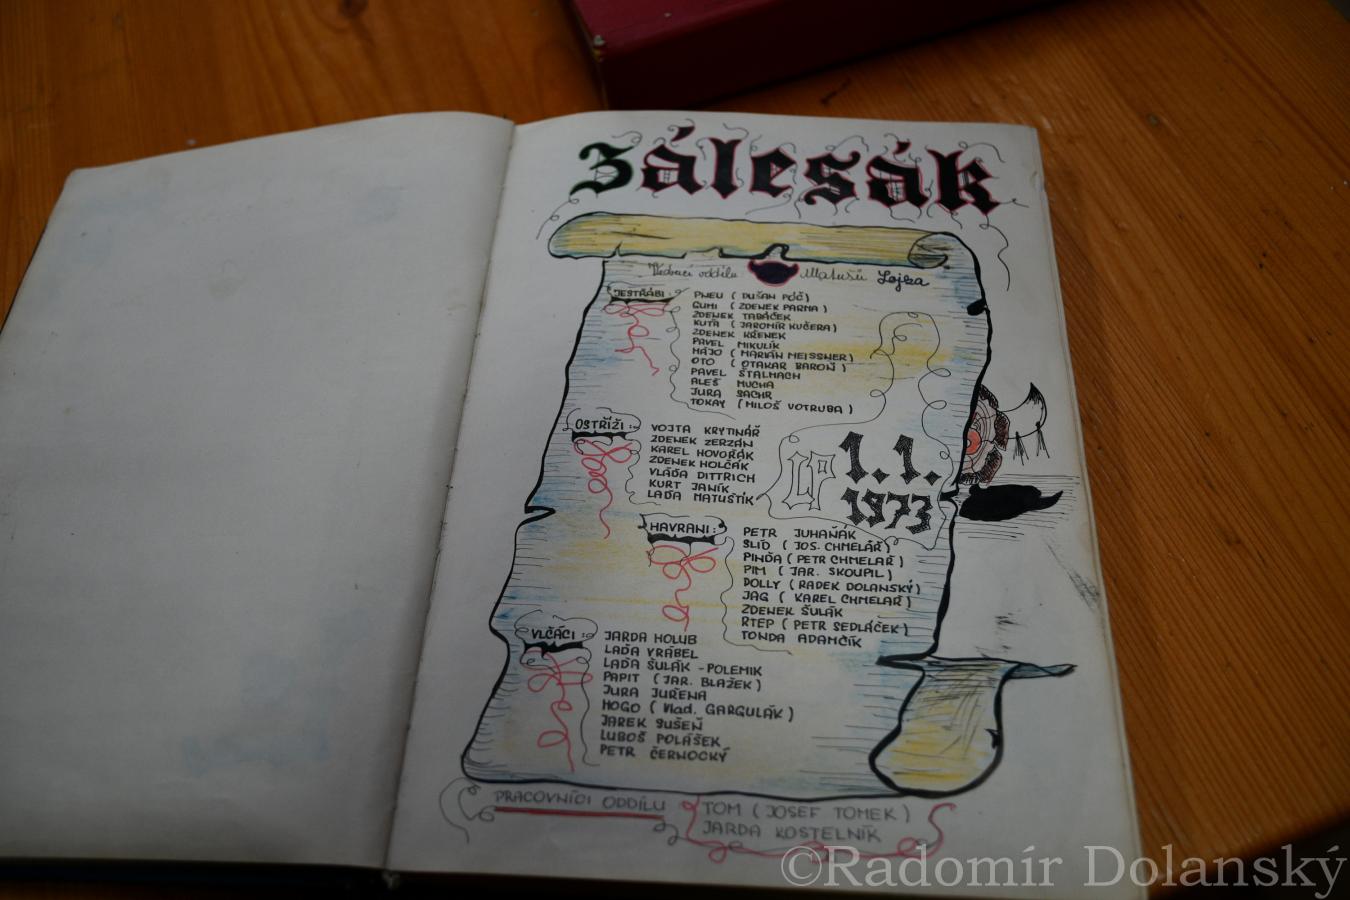 Zálesák
Vedoucí oddílu Matušů Lojza
JESTŘÁBI:
PNEU ( DUŠAN PÓČ )
GUMI ( ZDENEK PARMA )
ZDENEK TABÁČEK
KUTA ( JAROMÍR KUČERA )
ZDENEK KŘENEK
PAVEL MIKULÍK
MÁJO ( MARIÁN MEISSNER )
OTO ( OTAKAR BAROŇ )
PAVEL ŠTALMACH
ALEŠ MUCHA
JURA SACHR
TOKAY ( MILOŠ VOTRUBA )
OSTŘÍŽI:
VOJTA KRYTINÁŘ
ZDENEK ZERZÁN
KAREL HOVORÁK
ZDENEK HOLČÁK
VLÁĎA DITTRICH
KURT JANÍK
LAĎA MATUŠTÍK
LP 1.1.
1973
HAVRANI:
PETR JUHAŇÁK
SLÍD ( JOS. CHMELÁŘ )
PINĎA ( PETR CHMELAŘ )
PIM ( JAR. SKOUPIL )
DOLLY ( RADEK DOLANSKÝ )
JAG ( KAREL CHMELAŘ )
ZDENEK ŠULÁK
RTEP ( PETR SEDLÁČEK )
TONDA ADAMČÍK
VLČÁCI:
JARDA HOLUB
LAĎA VRÁBEL
LAĎA ŠULÁK - POLEMIK
PAPIT ( JAR. BLAŽEK )
JURA JUŘENA
HOGO ( Vlad. GARGULÁK )
JAREK SUŠEŇ
LUBOŠ POLÁŠEK
PETR ČERNOCKÝ
PRACOVNÍCI ODDÍLU
TOM ( JOSEF TOMEK )
JARDA KOSTELNÍK
©Radomír Dolanský